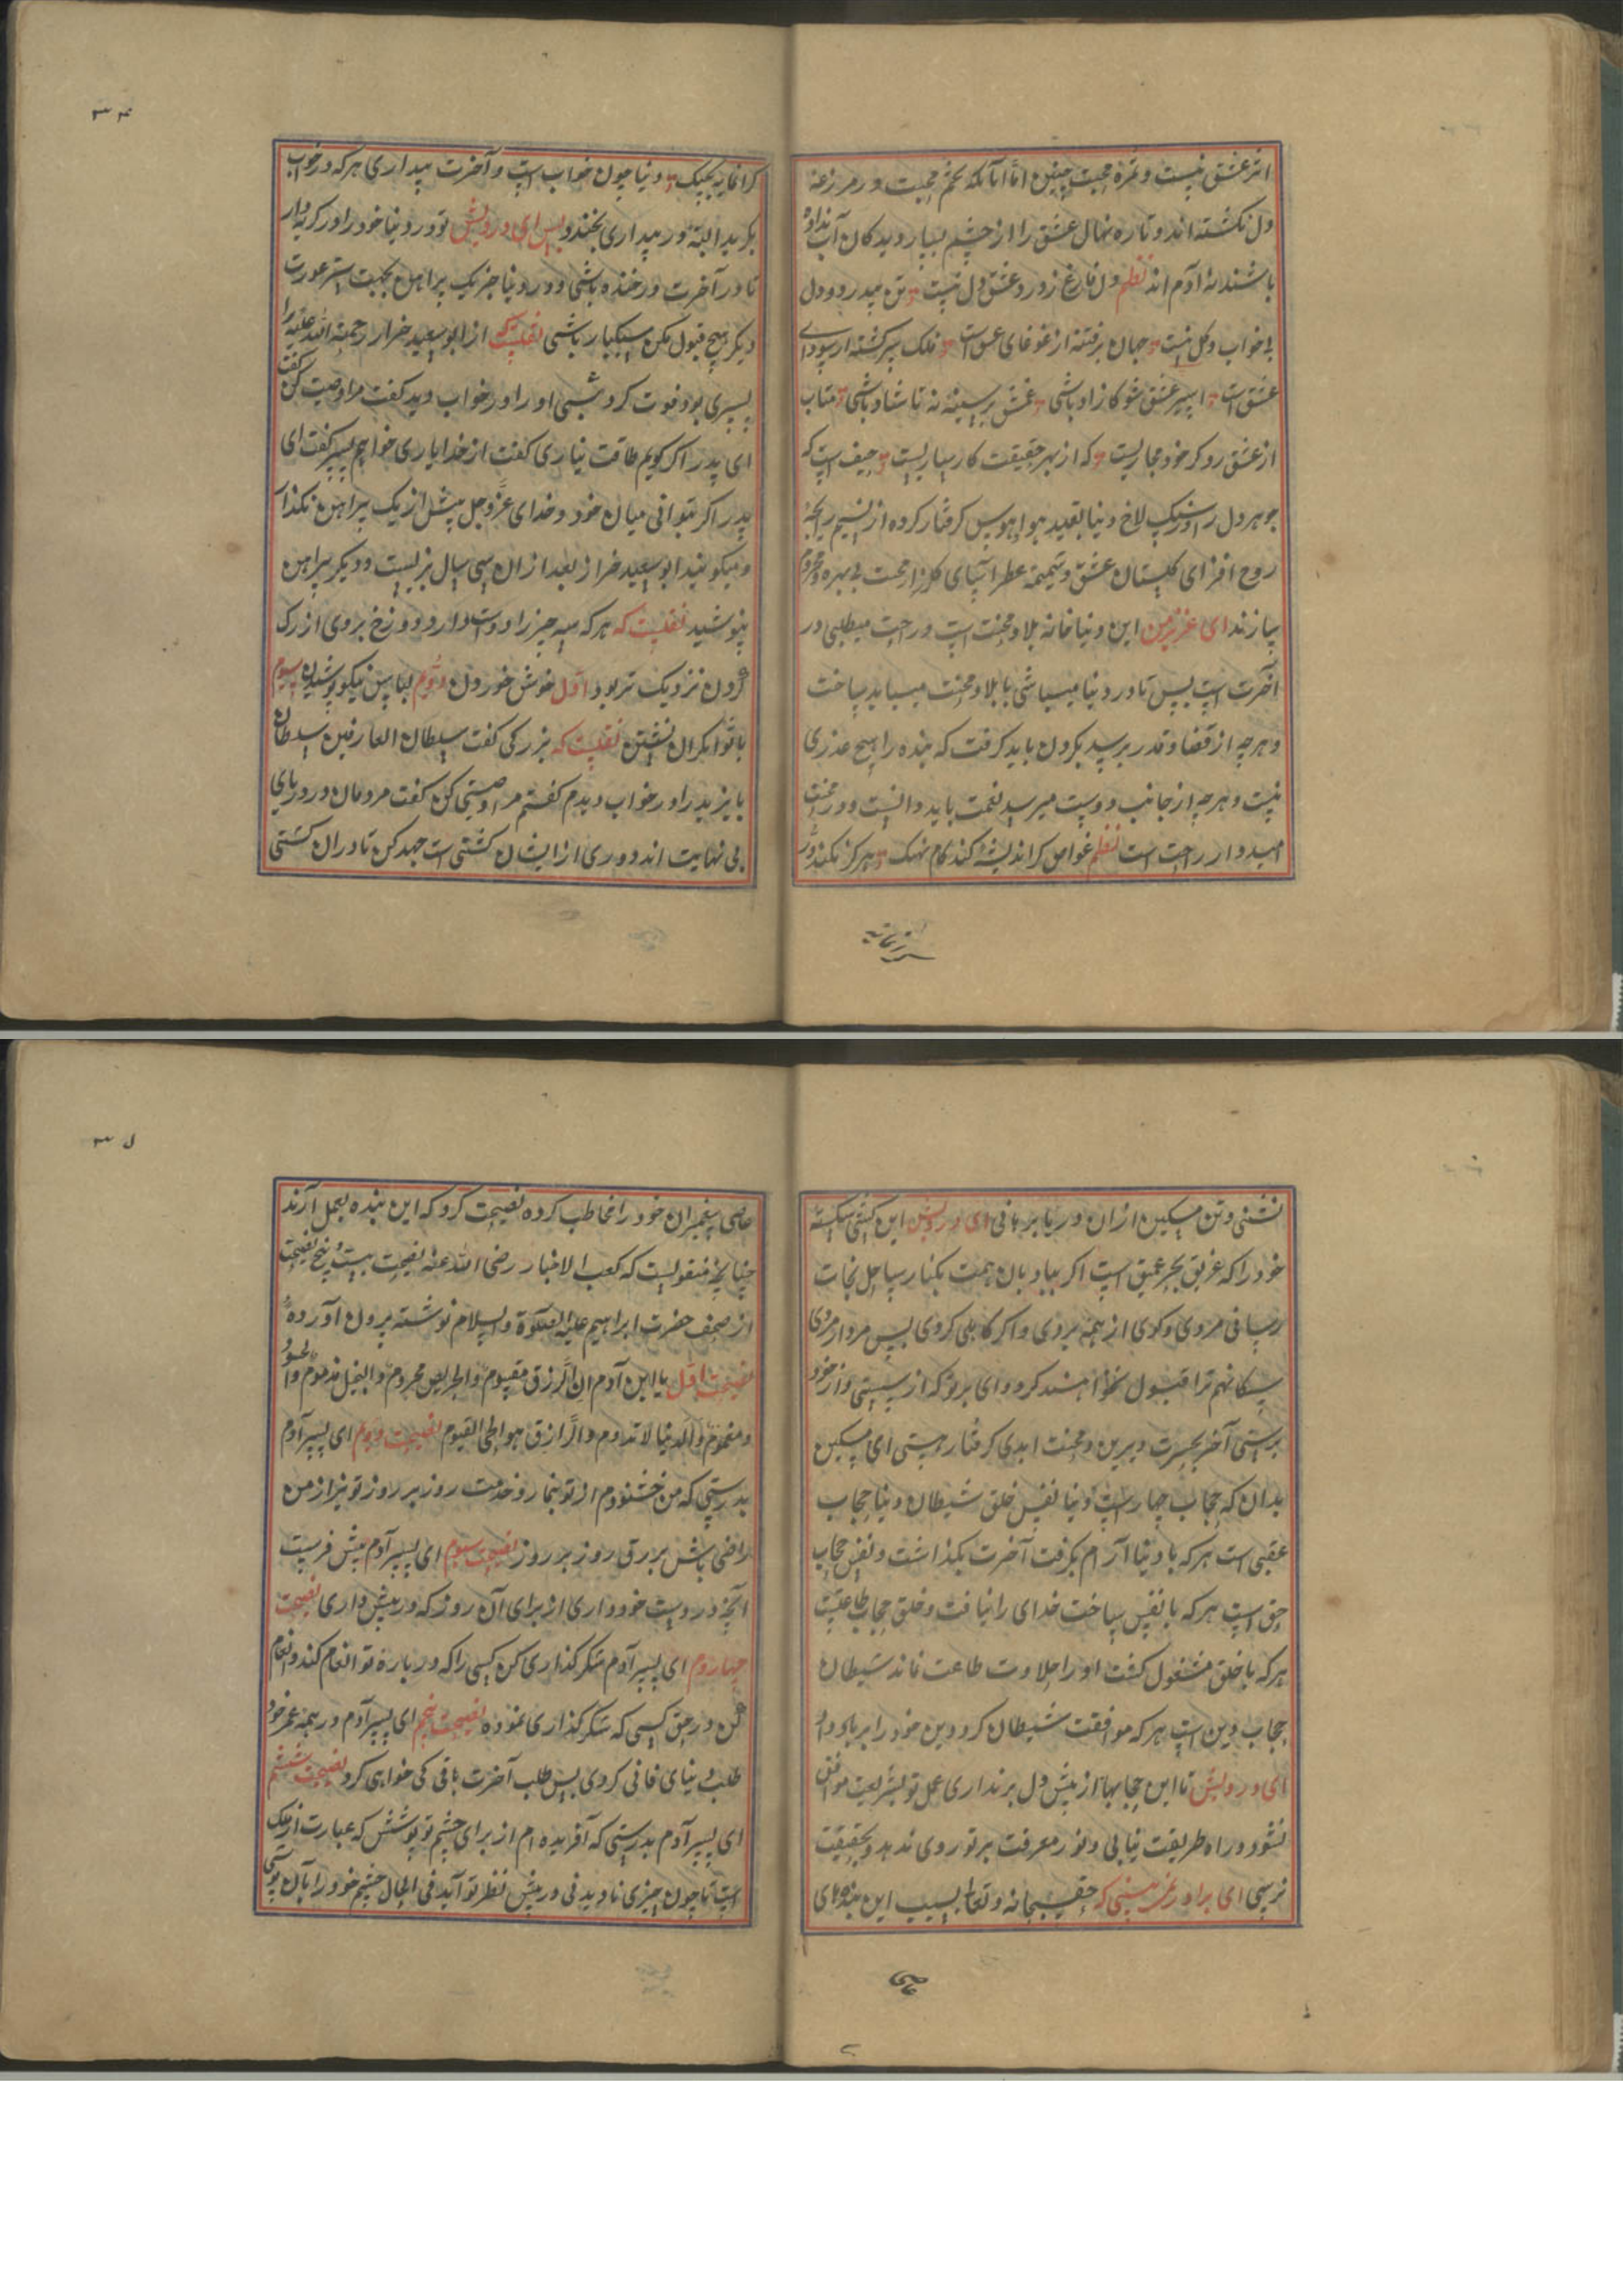 اثر عشق نیست و ثمره محبت چنین اما آنانکه تخم محبت در مزرعه
دل نکشته اند و تازه نهال عشق را از چشم بسیار دیدکان آب نداده
باشند نه آدم اند نظم دل فارغ ز درد عشق دل نیست تن بیدرد دل
بی خواب و کل نیست جهان پرفتنه از غوغای عشق است فلک سرکشته از سودای
عشق است اسیر عشق شو کازاد باشی غمش بر سینه نه تا شاد باشی متاب
از عشق رو کر خود مجازیست که از بهر حقیقت کارسازیست حیف است که
جوهر دل را در سنک لاخ دنیا بقید هوا و هوس کرفتار کرده از نسیم رایحهٔ
روح افزای کلستان عشق و شمیمه عطرآسای کلزار محبت بی بهره و محروم
سازند ای عزیز من این دنیا خانه بلا و محنت است و راحت میطلبی در
آخرت است پس تا در دنیا میباشی با بلا و محنت میباید ساخت
و هرچه از قضا و قدر برسد بکردن باید کرفت که بنده را هیچ عذری
نیست و هرچه از جانب دوست میرسد نعمت باید دانست و در محنت
امیدوار راحت است نظم غواص کر اندیشه کند کام نهنک هرکز نکند درّ
کرانمایه بچنک دنیا چون خواب است و آخرت بیداری هرکه در خواب
بکرید البته در بیداری بخندد پس ای درویش تو در دنیا خود را در کریه دار
تا در آخرت در خنده باشی و در دنیا جز یک پیراهن بجهت ستر عورت
دیکر هیچ قبول مکن سبکبار باشی نقلست که از ابو سعید خراز رحمة الله علیه را
پسری بود فوت کرد شبی او را در خواب دید کفت مرا وصیت کن کفت
ای پدر اکر کویم طاقت نیاری کفت از خدا یاری خواهم پسر کفت ای
پدر اکر بتوانی میان خود و خدای عزّوجل بیش از یک پیراهن نکذار
و میکویند ابو سعید خراز بعد از ان سی سال بزیست و دیکر پیراهن
نپوشید نقلیست که هرکه سه چیز را دوست دارد دوزخ بروی از رک
کردن نزدیک تر بود اوّل خوش خوردن دوّم لباس نیکو پوشیدن سیوم
با توانکران نشستن نقلیست که بزرکی کفت سلطان العارفین سلطان
بایزید را در خواب دیدم کفتم مرا وصیتی کن کفت مردمان در دریای
بی نهایت اند دوری از ایشان کشتی است جهد کن تا در ان کشتی
نشینی و تن مسکین از ان دریا برهانی ای درویش این کشتی شکسته
خود را که غریق بحر عمیق است اکر ببادبان همت بکنار ساحل نجات
رسانی مردی و کوی از همه بردی و اکر کاهلی کردی پس مردار مردی
سکان هم ترا قبول نخواهند کرد وای بر تو که از سستی و از خود
پرستی آخر بحسرت دیرین و محنت ابدی کرفتار هستی ای مسکین
بدان که حجاب چهار است دنیا نفس خلق شیطان دنیا حجاب
عقبی است هرکه با دنیا آرام بکرفت آخرت بکذاشت و نفس حجاب
حق است هرکه با نفس ساخت خدای را نیافت و خلق حجاب طاعتست
هرکه با خلق مشغول کشت او را حلاوت طاعت نماند شیطان
حجاب دین است هرکه موافقت شیطان کرد دین خود را بر باد داد
ای درویش تا این حجابها از پیش دل برنداری عمل تو بشریعت موافق
نشود و راه طریقت نیابی و نور معرفت بر تو روی ندهد و بحقیقت
نرسی ای برادر نمی بینی که حق سبحانه و تعالی بسبب این بندهای
عاصی
عاصی پیغمبران خود را مخاطب کرده نصیحت کرد که این بنده بعمل آرند
چنانچه منقولست که کعب الاخبار رضی الله عنه نصیحت بیست و پنج نصیحت
از صحف حضرت ابراهیم علیه الصلوة والسلام نوشته برون آورده
نصیحت اوّل یا ابن آدم ان الرزق مقسوم والحریص محروم والبخیل مذموم والحسود
و مغموم والدنیا لا تدوم والرّازق هوالحی القیوم نصیحت دویم ای پسر آدم
بدرستی که من خشنودم از تو بنماز و خدمت روز بر روز تو نیز از من
راضی باش برزق روز بر روز نصیحت سیوم ای پسر آدم پیش فرست
آنچه در دست خود داری از برای آن روز که در پیش داری نصیحت
چهارم ای پسر آدم شکر کذاری کن کسی را که در باره تو انعام کند و انعام
کن در حق کسی که شکر کذاری نموده نصیحت پنجم ای پسر آدم در همه عمر خود
طلب دنیای فانی کردی پس طلب آخرت باقی کی خواهی کرد نصیحت ششم
ای پسر آدم بدرستی که آفریده ام از برای چشم تو پوشش که عبارت از ملک
است تا چون چیزی نادیدنی در پیش نظر تو آید فی الحال چشم خود را بآن پوشی